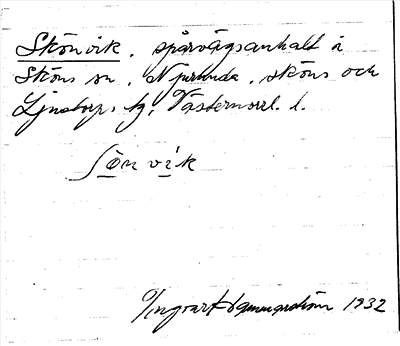 Skönvik, spårvägsanhalt i
Sköns sn, Njurunda, Sköns och
Ljustorps tg, Västernorrl. l.
Sönvik
Ingvar Hammarström 1932